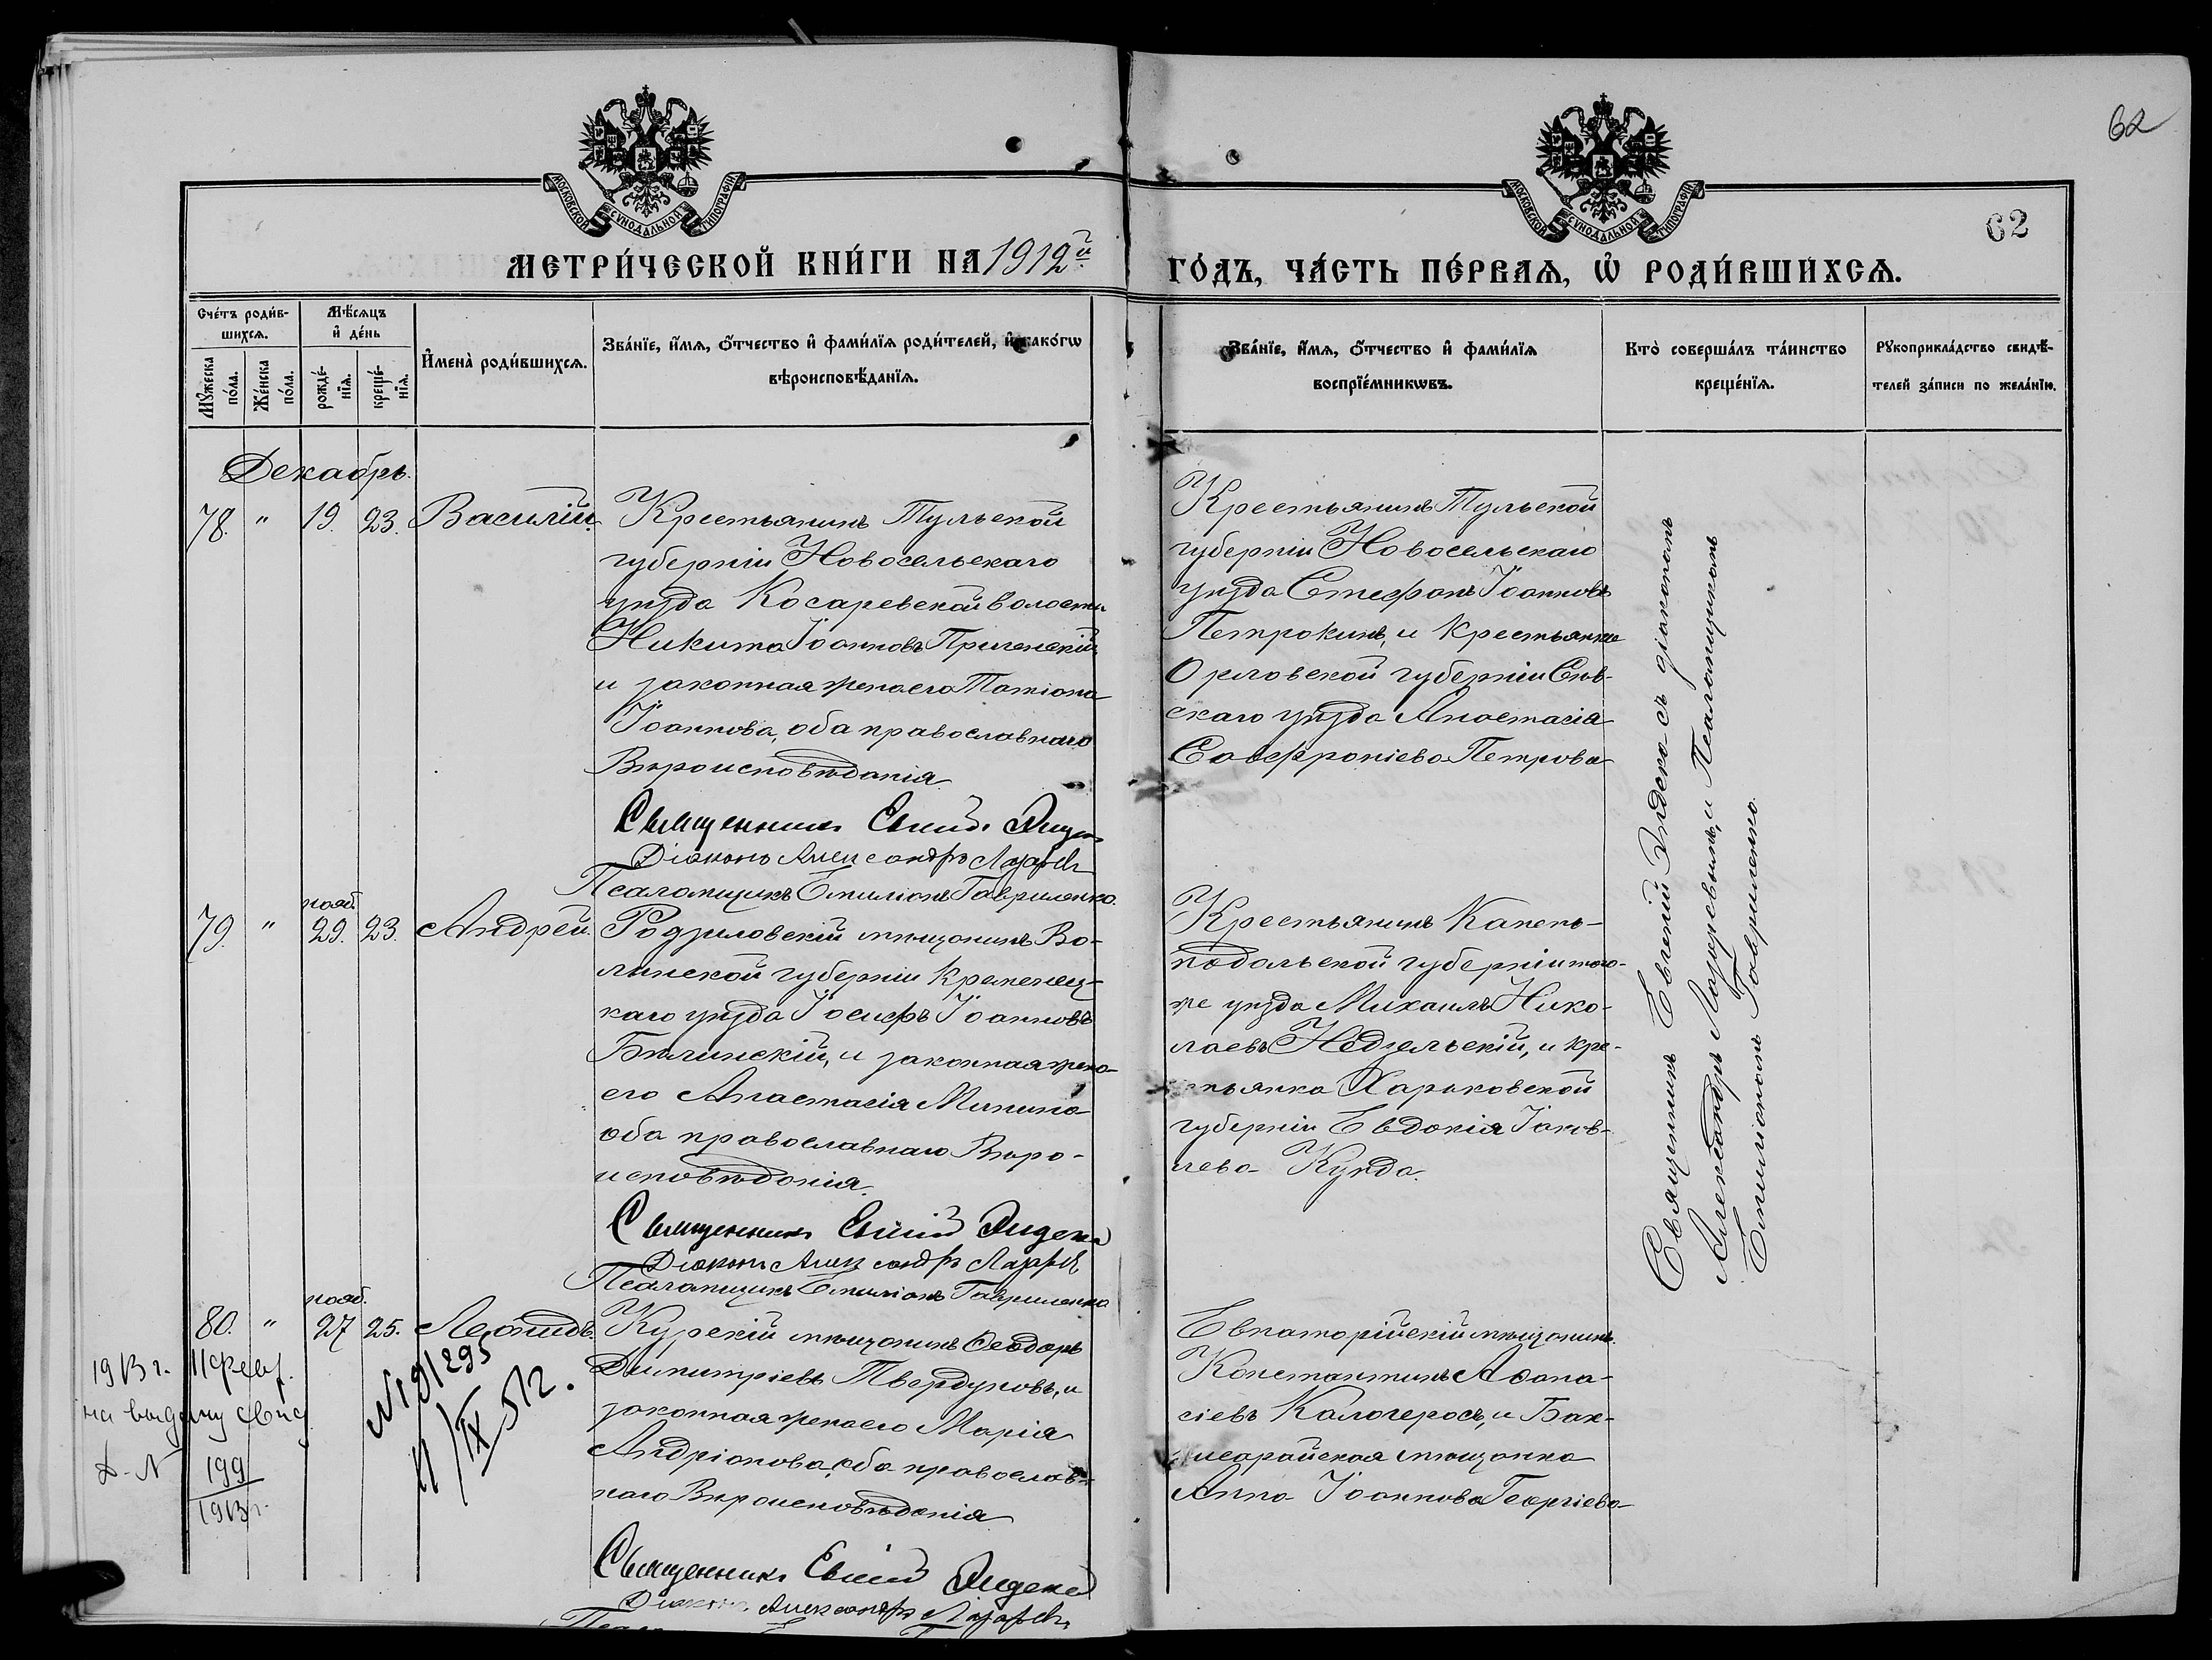 62
МОСКОВСКОЙ СѴНОДАЛЬНОЙ ТИПОГРАФІИ
МОСКОВСКОЙ СѴНОДАЛЬНОЙ ТИПОГРАФІИ
62
МЕТРИ́ЧЕСКОЙ КНИ́ГИ НА 1912й
ГО́ДЪ, ЧА́СТЬ ПЕ́РВАѦ, Ѡ҆ РОДИ́ВШИХСѦ.
Сче́тъ роди́в-
шихсѧ.
Мꙋ́жеска по́ла.
Же́нска по́ла.
Мѣ́сѧцъ
и҆ де́нь
рожде́-
нїѧ.
креще́-
нїѧ.
И҆мена̀ роди́вшихсѧ.
Зва́нїе, и҆́мѧ, о҆́тчество и҆ фами́лїѧ роди́телей, и҆ како́гѡ
вѣроисповѣ́данїѧ.
Зва́нїе, и҆́мѧ, о҆́тчество и҆ фами́лїѧ
воспрїе́мникѡвъ.
Кто̀ соверша́лъ та́инство
креще́нїѧ.
Рꙋкоприкла́дство свидѣ́-
телей за́писи по жела́нїю.
Декабрь.
78. " 19. 23. Василій.
Крестьянинъ Тульской
губерніи Новосельскаго
уѣзда Косаревской волости
Никита Іоанновъ
и законная жена его Татіана
Іоаннова, оба православнаго
Вѣроисповѣданія
Священникъ Евгеній Эндека
Діаконъ Александръ Лазаревъ
Псаломщикъ Емиліанъ Гавриленко.
Крестьянинъ Тульской
губерніи Новосельскаго
уѣзда Стефанъ Іоанновъ
Петрокинъ, и крестьянка
Орловской губерніи Сѣв-
скаго уѣзда Анастасія
Софроніева Петрова
Священникъ Евгеній Эндека съ діакономъ
Александръ Лазаревымъ, и Псаломщикомъ
Емиліаномъ Гавриленко.
79. " нояб. 29. 23. Андрей.
Радзиловскій мѣщанинъ Во-
лынской губерніи Кременец-
каго уѣзда Іосифъ Іоанновъ
Бѣлинскій, и законная жена
его Анастасія Минина
оба православнаго Вѣро-
исповѣданія.
Священникъ Евгеній Эндека
Діаконъ Александръ Лазаревъ
Псаломщикъ Емиліанъ Гавриленко
Крестьянинъ Камень-
подольской губерніи того-
же уѣзда Михаилъ Нико-
лаевъ Недзельскій, и кре-
стьянка Харьковской
губерніи Евдокія Іаков-
лева Кунда.
80. " нояб. 27 25. Леонидъ.
Курскій мѣщанинъ Ѳеодоръ
Димитріевъ Твердуновъ, и
законная жена его Марія
Андріанова, оба православ-
наго Вѣроисповѣданія
Священникъ Евгеній Эндека
Діаконъ Александръ Лазаревъ
Евпаторійскій мѣщанинъ
Константинъ Аѳана-
сіевъ Калогеросъ, и Бах-
чисарайская мѣщанка
Анна Іоаннова Георгіева
1913 г. 11 февр.
на выдачу свид
Д. N 199
1913 г.
N 191295
11/IX 512.